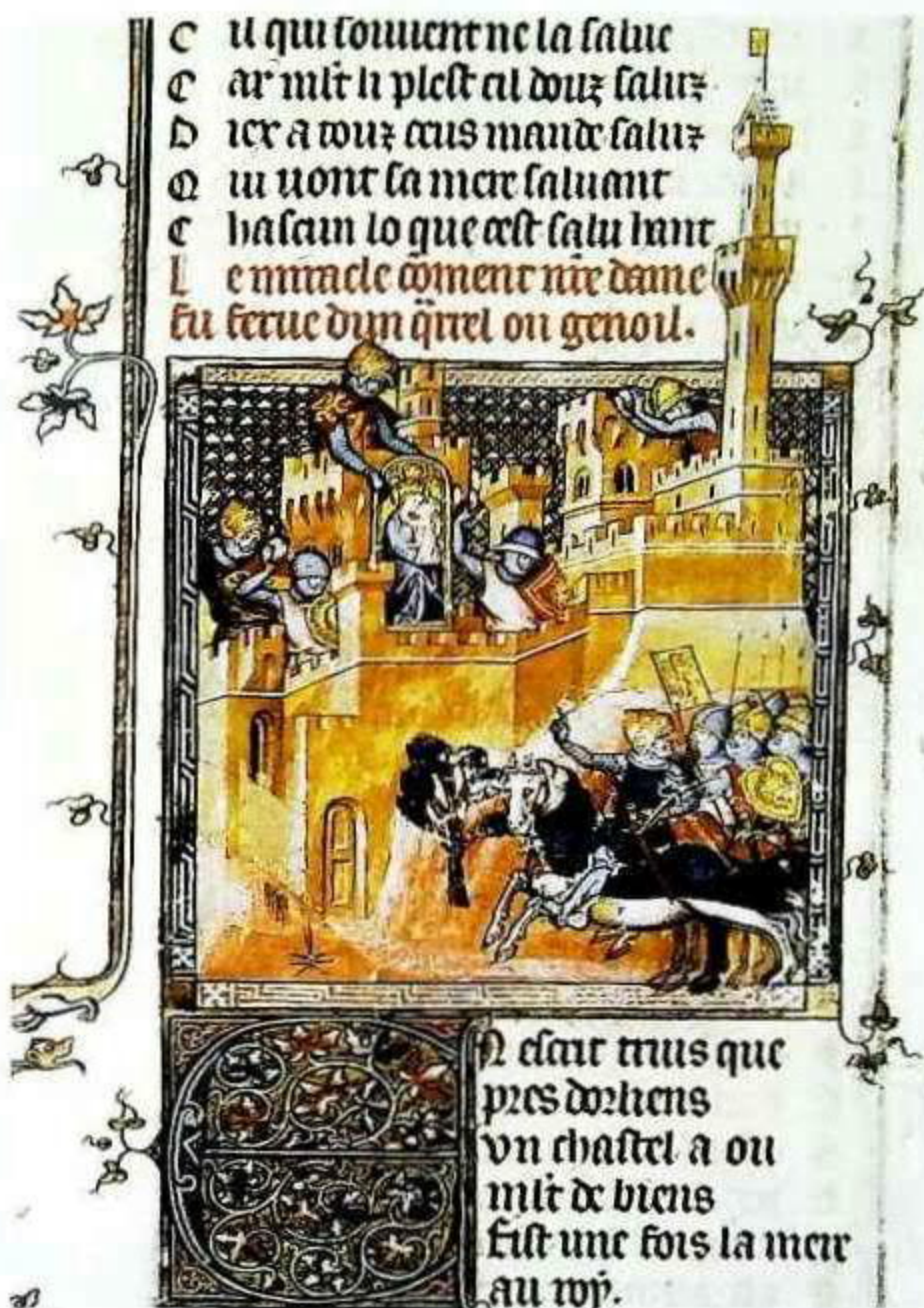 C il qui souvient ne la salue
C ar mlt li plest cil douz saluz
D iex a touz ceus mande saluz
Q ui vont sa mere saluant
C hascun lo que cest salu hant
L e miracle coment nre dame
fu ferue dun qrrel ou genoil.
E n escrit truis que
pres dorliens
vn chastel a ou
mlt de biens
fist une fois la mere
au roy.